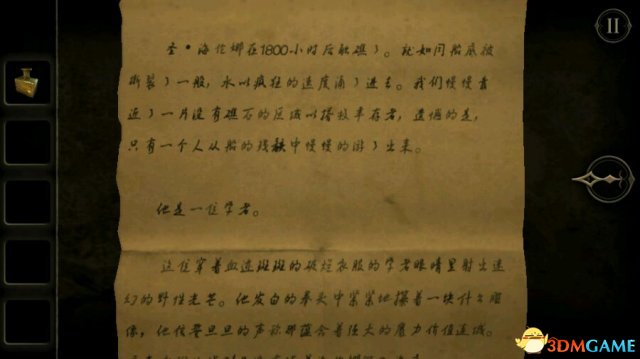 圣·海伦娜在1800小时后触礁了。就如同船底被
撕裂了一般，水以疯狂的速度涌了进去。我们慢慢靠
近了一片没有礁石的区域以搭救幸存者，遗憾的是，
只有一个人从船的残骸中慢慢的游了出来。
他是一位学者。
这位穿着血迹斑斑的破烂衣服的学者眼睛里射出迷
幻的野性光芒。他发白的拳头中紧紧地握着一块什么雕
像，他信誓旦旦的声称那蕴含着强大的魔力价值连城。
3DMGAME